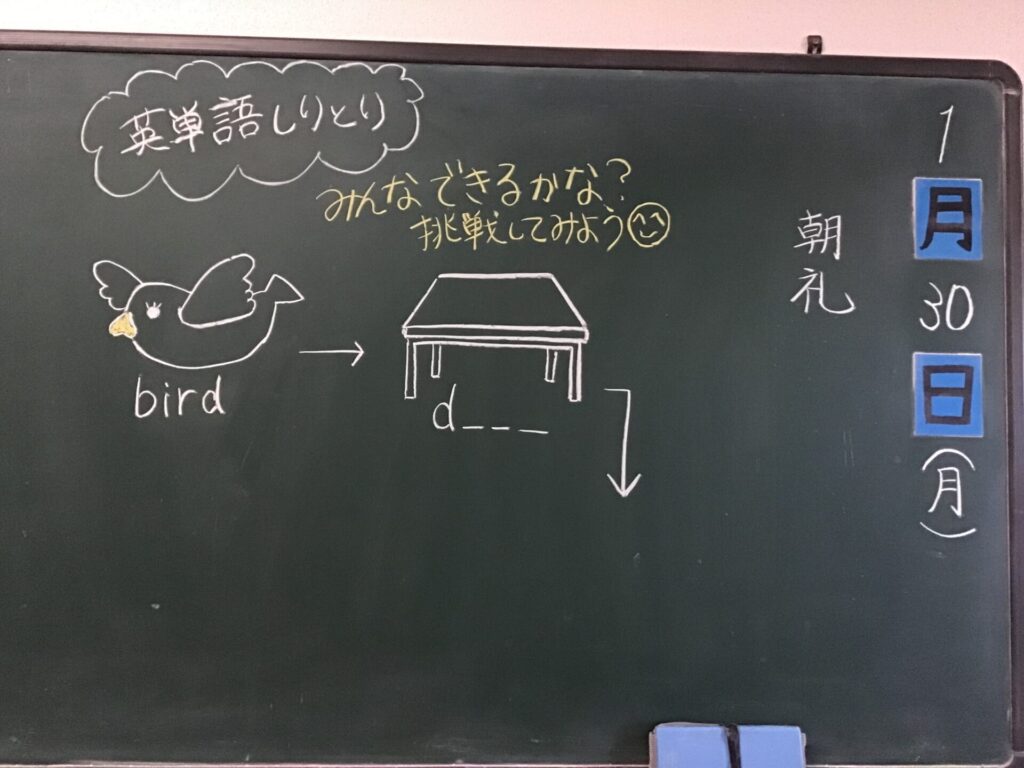 1月30日(月)
朝礼
英単語しりとり
みんなできるかな?
挑戦してみよう
bird
d___